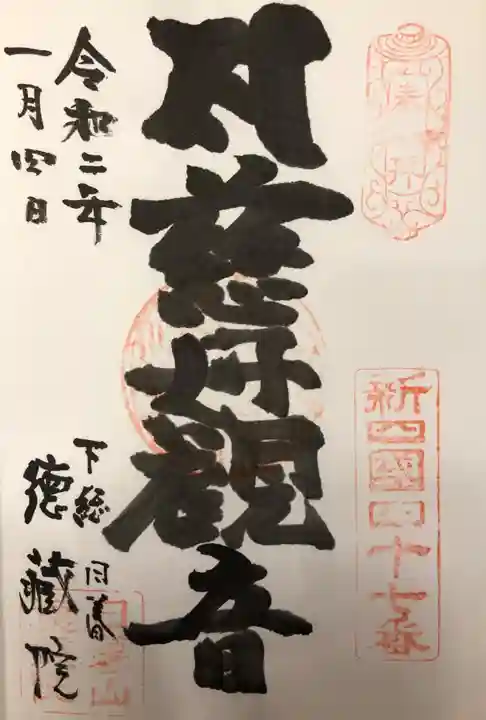 奉拝
新四國四十七番
慈母觀音
令和二年
一月四日
下総 日暮
徳藏院